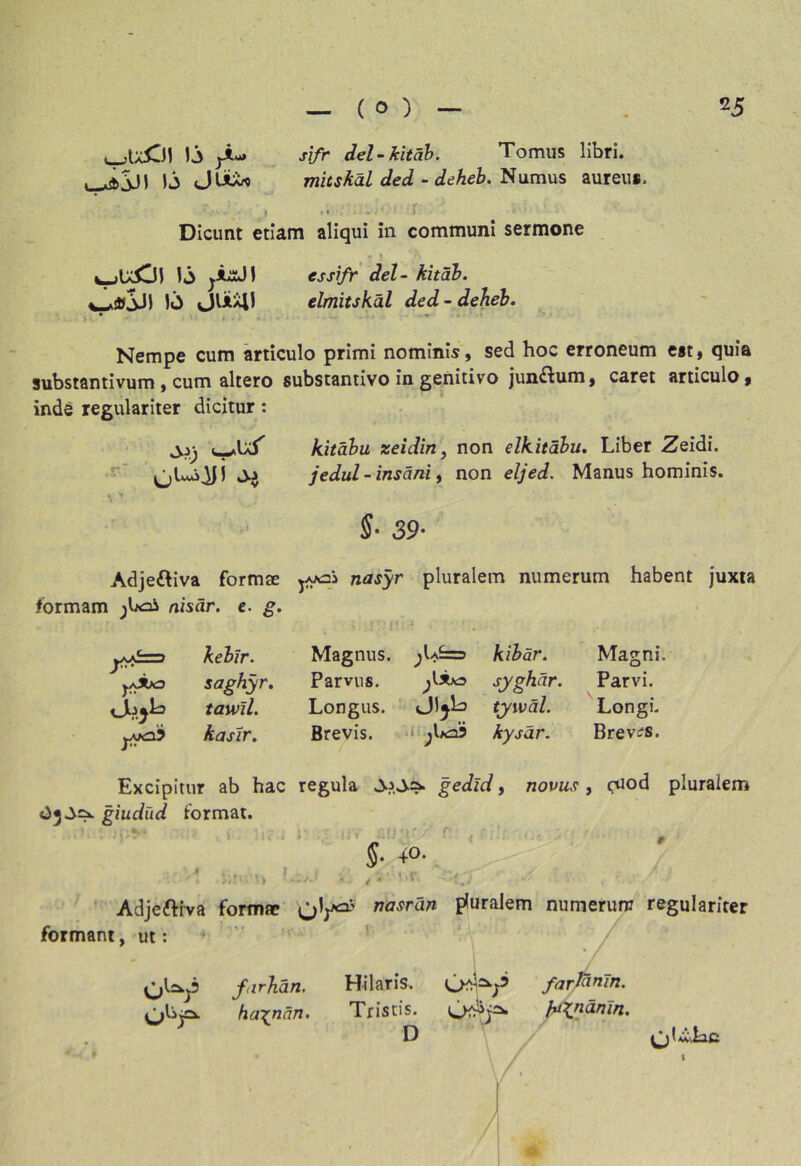 — ( o ) — 25
سفر ذا الكتاب sifr del-kitāb. Tomus libri.
مثقال ذا الذهب mitskāl ded - deheb. Numus aureus.
Dicunt etiam aliqui in communi sermone
السفر ذا الكتاب essifr del- kitāb.
المثقال ذا الذهب elmitskāl ded - deheb.
Nempe cum articulo primi nominis, sed hoc erroneum est, quia
substantivum, cum altero substantivo in genitivo junctum, caret articulo,
indè regulariter dicitur :
كتاب زيد kitābu zeidin, non elkitābu. Liber Zeidi.
يد الانسان jedul - insāni, non eljed. Manus hominis.
§. 39.
Adjectiva formæ نصير nasȳr pluralem numerum habent juxta
formam نصار nisār. e. g.
كبير kebīr. Magnus. كبار kibār. Magni.
صغير saghȳr. Parvus. صغار syghār. Parvi.
طويل tawīl. Longus. طوال tywāl. Longi.
قصير kasīr. Brevis. قصار kysār. Breves.
Excipitur ab hac regula جديد gedīd, novus, quod pluralem
جدود giudūd format.
§. 40.
Adjectiva formæ نصران nasrān pluralem numerum regulariter
formant, ut :
فرحان farhān. Hilaris. فرحانين farhānīn.
حزنان haznān. Tristis. حزنانين haznānīn.
D عطشان